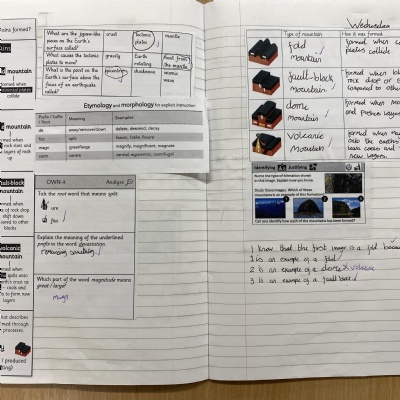 tains formed?
mountain
collide
mountain
rock rises
and layers of rock
up
ult-block
mountain
med when
e of rock drop
shift down
pared to other
blocks
volcanic
mountain
spills onto
- cools and
s to form new
layers
hat describes
rmed through
processes.
I produced
What are the jigsaw-like
pieces on the Earth's
surface called?
crust
Tectonic
plates
mantle
What causes the tectonic
plates to move?
gravity
Earth
rotating
Heat from
the mantle
What is the point on the
Earth's surface above the
focus of an earthquake
called?
epicentre
shockwave
seismic
wave
Etymology and morphology for explicit instruction
Prefix / Suffix
/ Root
Meaning
Examples
de
away/removed/down
delete, descend, decay
fis
split
fission, fissile, fissure
magn
great/large
magnify, magnificent, magnate
cent
centre
central, egocentric, centrifugal
OWN-it
Analyse
Tick the root word that means split
ure
fiss
Explain the meaning of the underlined
prefix in the word devastation
removing something
Which part of the word magnitude means
great / large?
Magn
Wednesday
Type of mountain
How it was formed
fold
mountain
formed when
plates collide.
fault-block
mountain
formed when
rock drop or
compared to other
dome
mountain
formed when
and pushes layers
volcanic
mountain
formed when
onto the earths
lava cools and
new layers.
Identifying
Justifying
Name the type of formation shown
in this image. Explain how you know.
Study these images. Which of these
mountains is an example of dome formation?
Can you identify how each of the mountains has been formed?
I know that the first image is a fold because
1 is an example of a fold
2 is an example of a dome x volcanic
3 is an example of a fault block